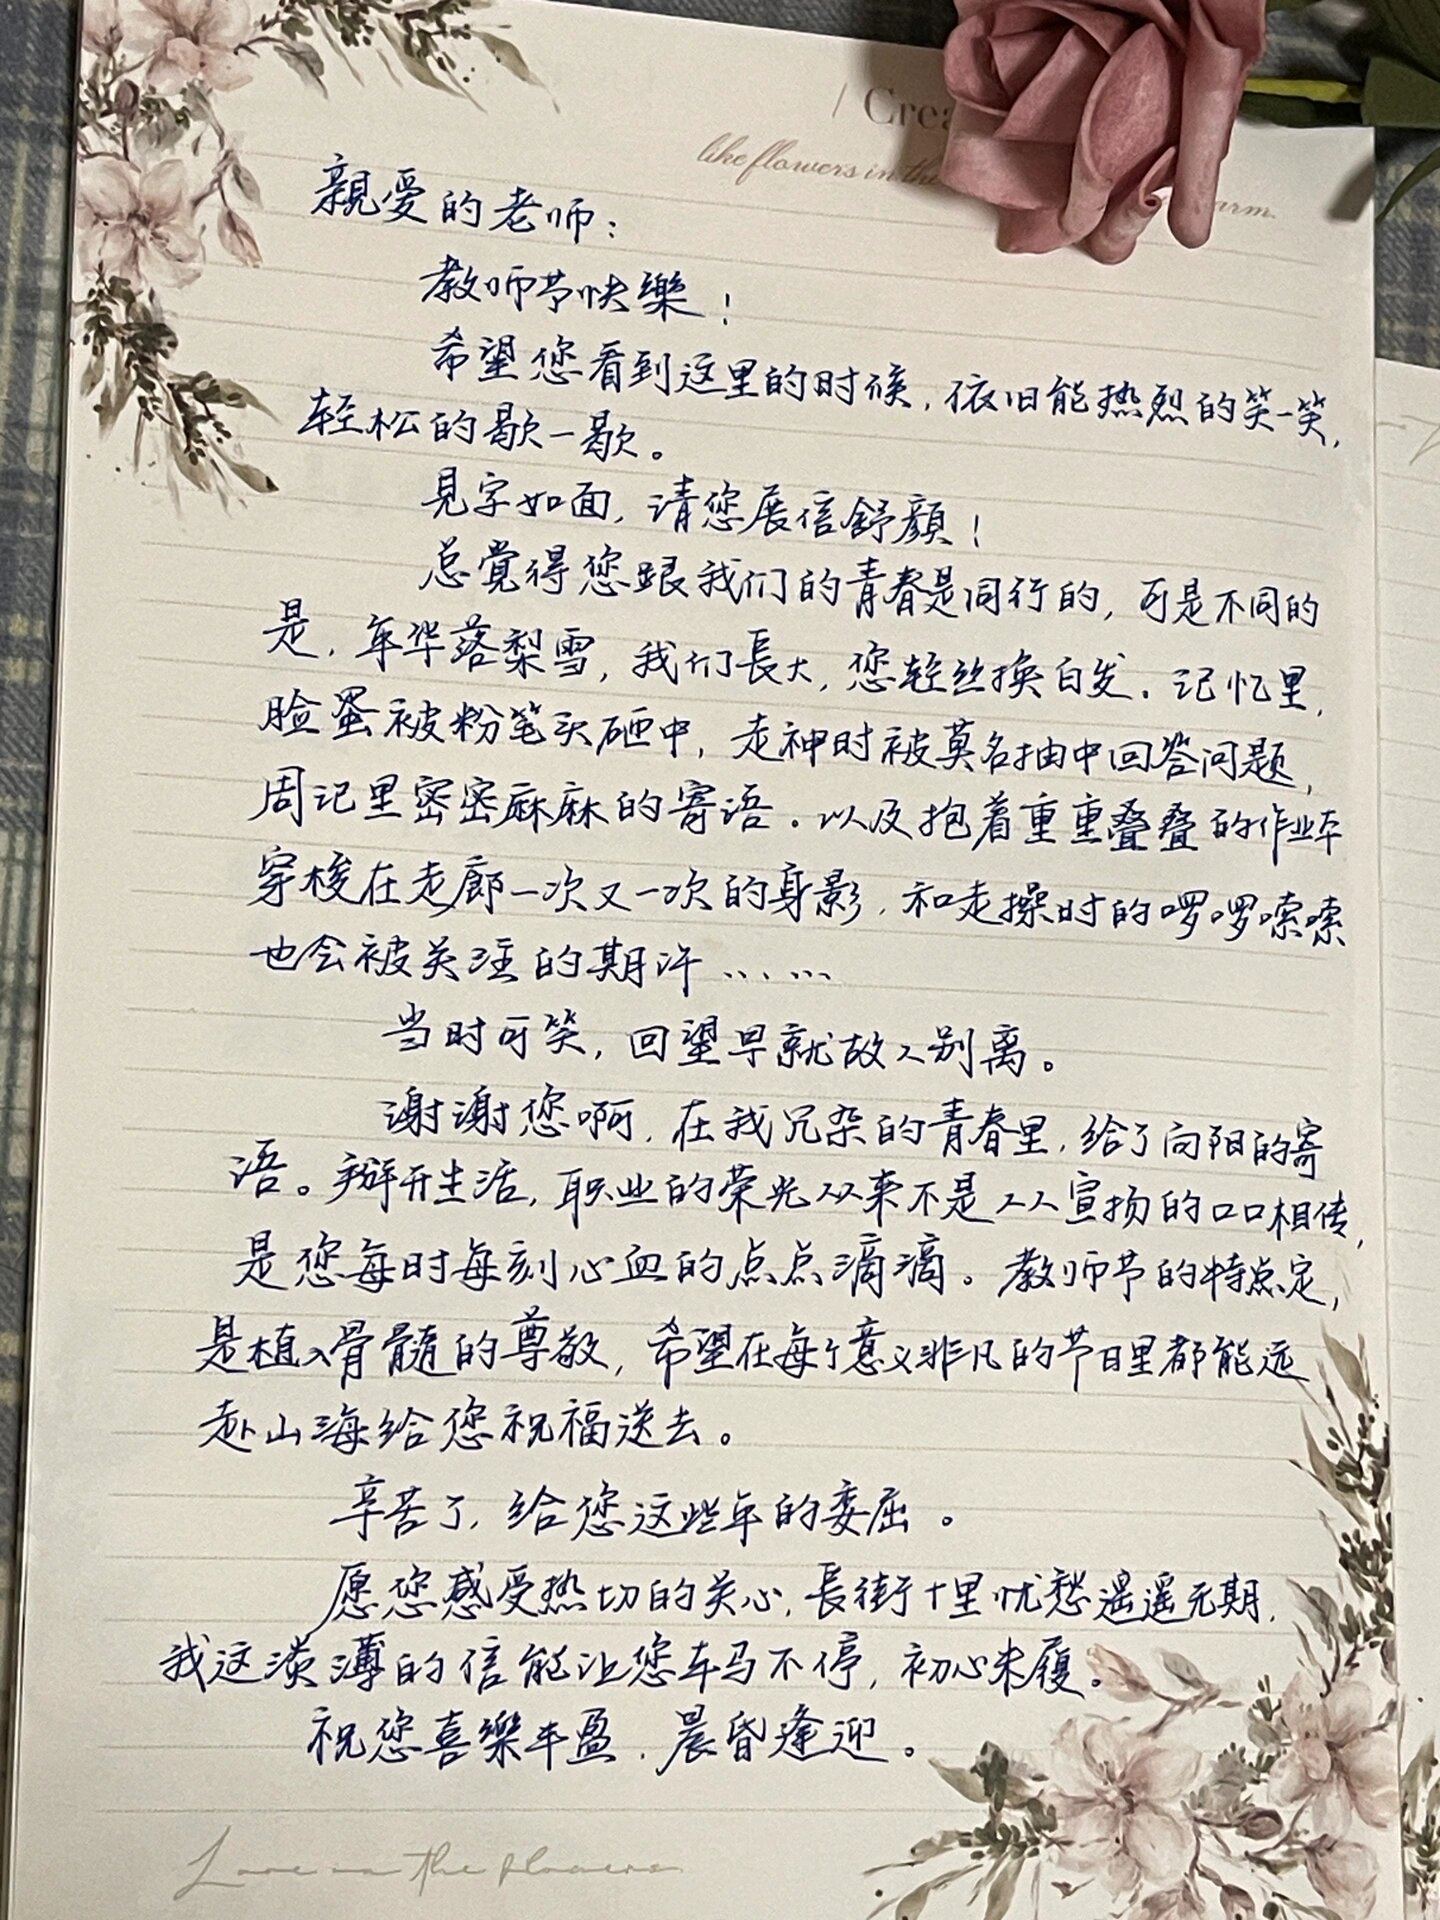 / Crea
like flowers in the
arm.
親爱的老师：
教师节快樂！
希望您看到这里的时候，依旧能热烈的笑一笑，
轻松的歇一歇。
見字如面，请您展信舒顔！
总覺得您跟我们的青春是同行的，可是不同的
是，年华落梨雪，我们長大，您轻丝换白发。记忆里，
脸蛋被粉笔头砸中，走神时被莫名抽中回答问题，
周记里密密麻麻的寄语。以及抱着重重叠叠的作业本
穿梭在走廊一次又一次的身影，和走操时的啰啰嗦嗦
也会被关注的期许……
当时可笑，回望早就故人别离。
谢谢您啊，在我冗杂的青春里，给了向阳的寄
语。掰开生活，职业的荣光从来不是人人宣扬的口口相传，
是您每时每刻心血的点点滴滴。教师节的特点定，
是植入骨髓的尊敬，希望在每个意义非凡的节日里都能远
赴山海给您祝福送去。
辛苦了，给您这些年的委屈。
愿您感受热切的关心，長街十里忧愁遥遥无期，
我这淡薄的信能让您车马不停，初心未履。
祝您喜樂丰盈，晨昏逢迎。
Love in the flowers